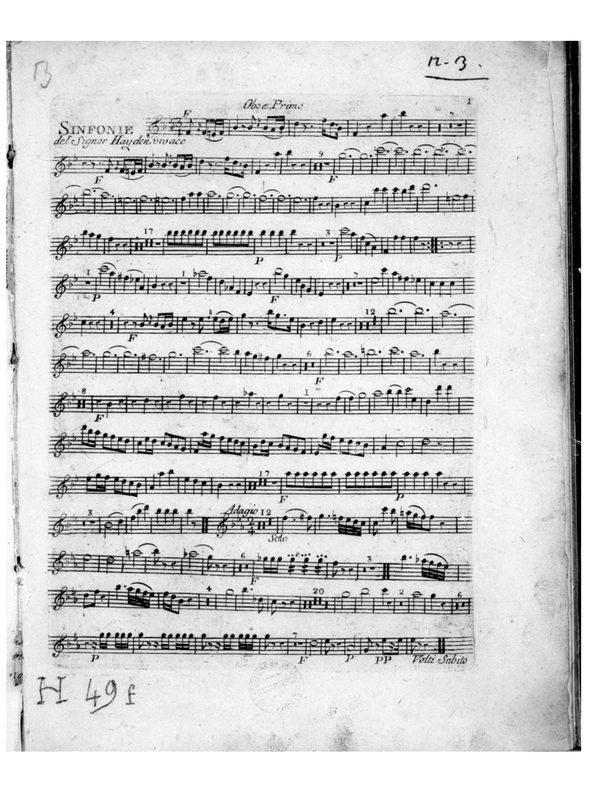 13
n.-13.
Oboe Primo
1
SINFONIE
F
7
del Signor Hayden. vivace
F
9
F
17
P
3
P
1
P
1
F
7
4
F
12
6
F
8
F
1
17
F
P
3
Adagio 12
Solo
6
F
3
4
20
2
6
P
7
F
P
PP
Volti Subito
H 49 f